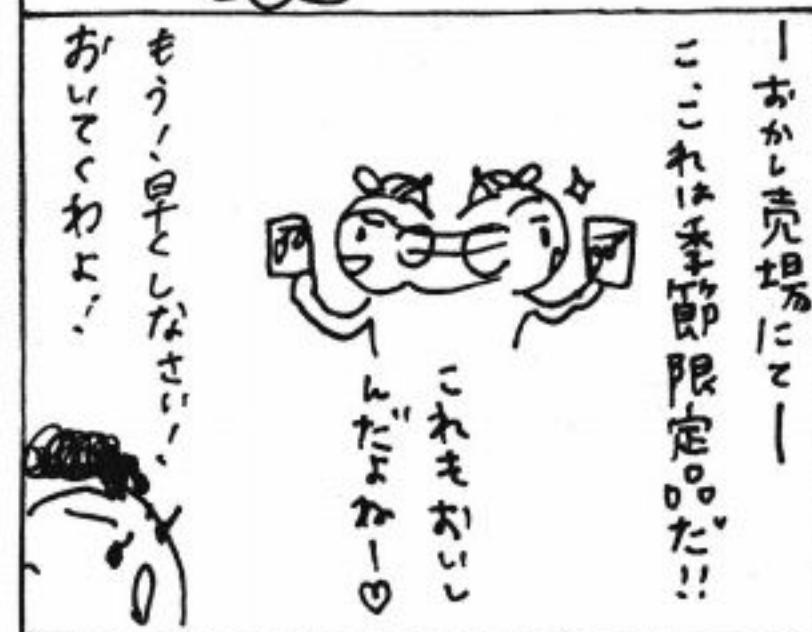 ―おかし売場にて―
こ、これは季節限定品だ!!
これもおいし
んだよねー♡
もう!、早くしなさい!、
おいてくわよ!